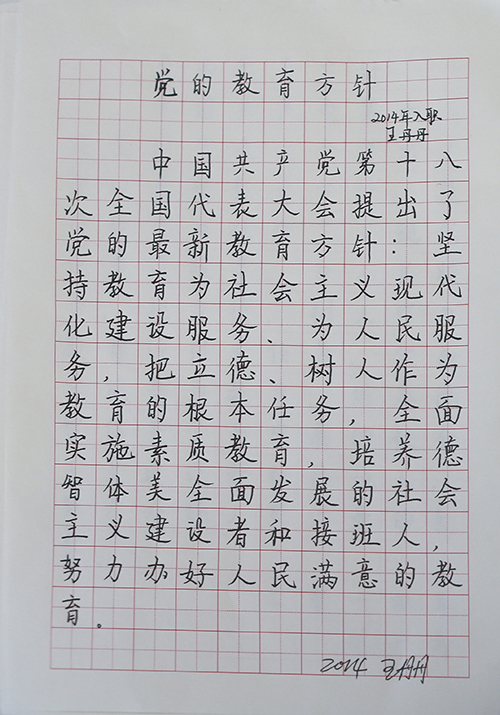 党的教育方针
2014年入职
王丹丹
中国共产党第十八
次全国代表大会提出了
党的最新教育方针：坚
持教育为社会主义现代
化建设服务、为人民服
务，把立德、树人作为
教育的根本任务，全面
实施素质教育，培养德
智体美全面发展的社会
主义建设者和接班人，
努力办好人民满意的教
育。
2014 王丹丹